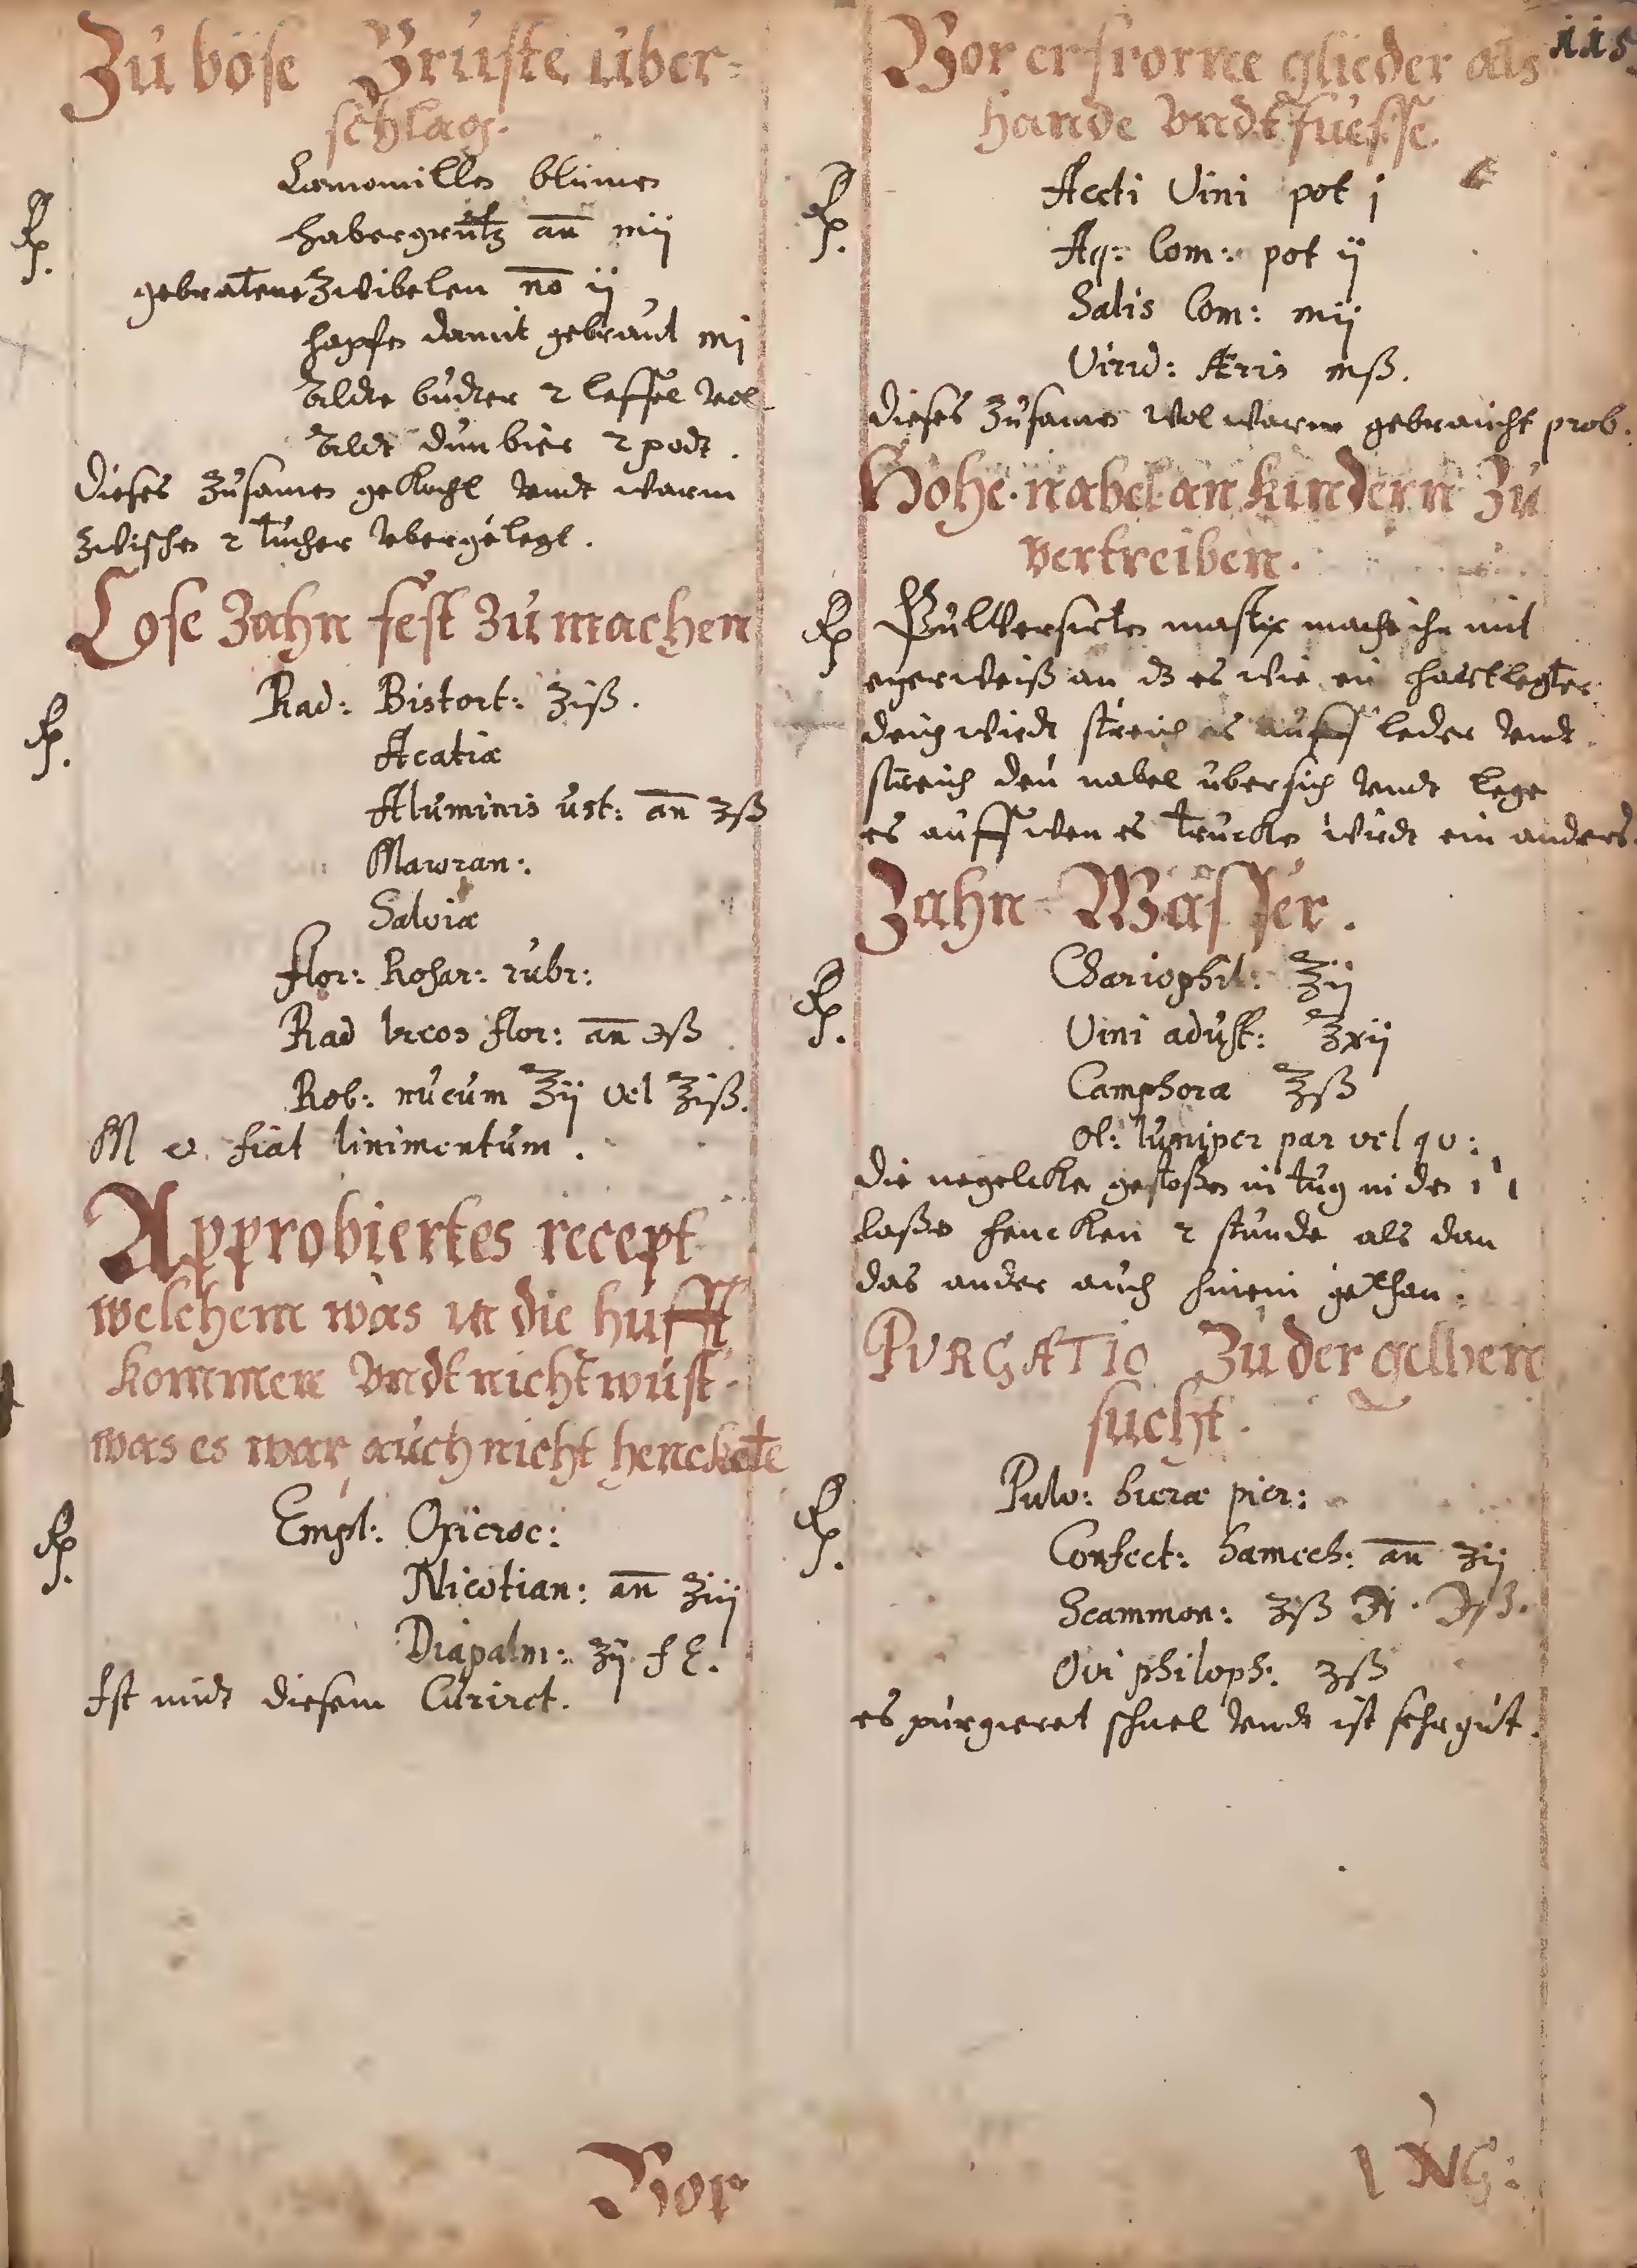 Zu böse Brüste über-
schlag.
Rp.
Camomillen blumen
habergrütz an mij
gebratene Zwibelen no ij
hopfen damit gebraut mj
Alde budter 2 leffel vol
Aldt dun bier 2 podt.
Dieses Zusamen gekocht vndt warm
zwischen 2 tücher vbergelegt.
Lose Zahn fest Zu machen
Rp.
Rad: Bistort: ʒiß.
Acatiæ
Aluminis ust: an ʒß
Maioran:
Salviæ
flor: Rosar: rubr:
Rad Ireos flor: an ℈ß
Rob: nucum ℥ij vel ℥iß.
M fiat linimentum.
Approbiertes recept
welchem was in die hufft
kommen vndt nicht wust
was es war auch nicht henckete
Rp.
Empl: Oxicroc:
Nicotian: an ʒiij
Diapalm: ʒij f E.
Ist midt diesem Curiret.
Vor
115
Vor erfrorne glieder als
hande vndt fuesse.
Rp.
Aceti Vini pot j
Aq: Com: pot ij
Salis Com: mij
Virid: Æris mß.
dieses Zusamen wol warm gebraucht prob.
Hohe nabel an kindern Zu
vertreiben.
Rp
Pulverisirten mastix mache ihn mit
eyerweiß an dz es wie ein
deig wirdt streich es auff leder vndt
streich den nabel übersich vndt lege
es auff wen es trucken wirdt ein anders.
Zahn-Wasser.
Rp.
Chariophil: ℥ij
Vini adust: ℥xij
Camphora ℥ß
Ol: Iuniper par vel qv:
die negelcken gestoßen in
laßen hencken 2 stunde als dan
das ander auch hinein gethan.
PURGATIO Zu der gelben
sucht.
Rp.
Pulv: hieræ picr:
Confect: hamech: an ʒij
Scammon: ʒß
Ovi philoph: ʒß
es purgieret schnel vndt ist sehr gut.
UNG: